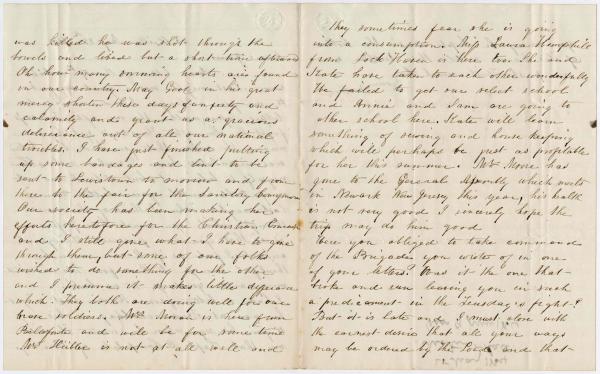 was killed he was shot through the
bowels and lived but a short time afterward
Oh how many mourning hearts are found
in our country. May God in his great
mercy shorten these days of and
calamity and grant us a gracious
deliverance out of all our national
troubles. I have just finished putting
up some bandages and lint to be
sent to Lewistown to morrow and from
there to the fair for the Sanitary
Our society has been making her
efforts heretofore for the Christian
and I still give what I have to give
through them, but some of our folks
wished to do something for the other
and I presume it makes little difference
which. They both are doing well for our
brave soldiers. Mrs is here from
Bellefonte and will be for some time
Mrs is not at all well and
They sometimes fear she is going
into a consumption. Miss Laura Hemphill
from Lock Haven is here too. She and
Kate have taken to each other wonderfully
We failed to get our select school
and Annie and Sam are going to
other school here. Kate will learn
something of sewing and house keeping
which will perhaps be just as profitable
for her this summer. Mr. Moore has
gone to the General Assembly which meets
in Newark New Jersey this year, his health
is not very good I sincerely hope the
trip may do him good
Were you obliged to take command
of the Brigade you wrote of in one
of your letters? Was it the one that
broke and ran leaving you in such
a predicament in the Thursday's fight?
But it is late and I must close with
the earnest desire that all your ways
may be ordered by the Lord and that